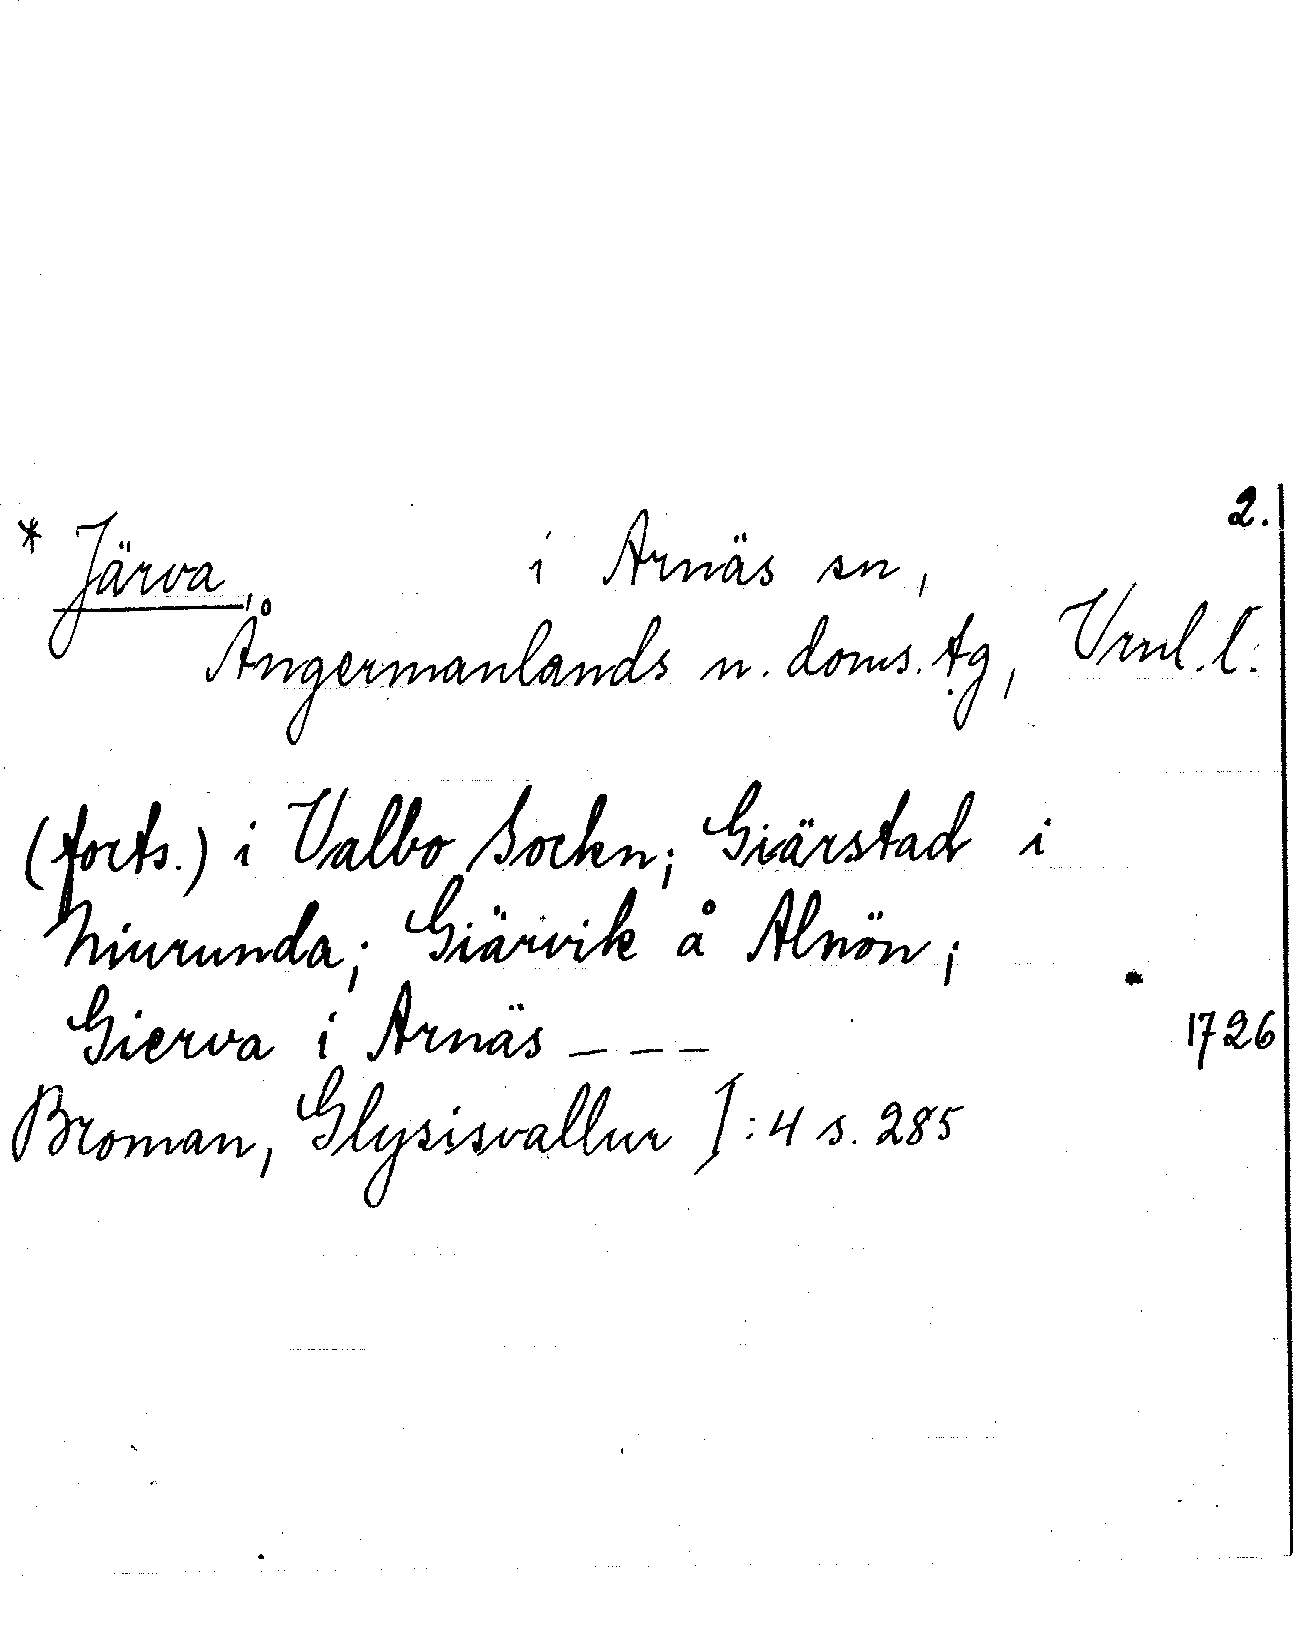 2.
* Järva, i Arnäs sn,
Ångermanlands n. doms. tg, Vrnl. l.
(forts.) i Valbo Sockn; Giärstad i
Niurunda; Giärvik å Alnön;
Gierva i Arnäs --- 1726
Broman, Glysisvallur I:4 s. 285